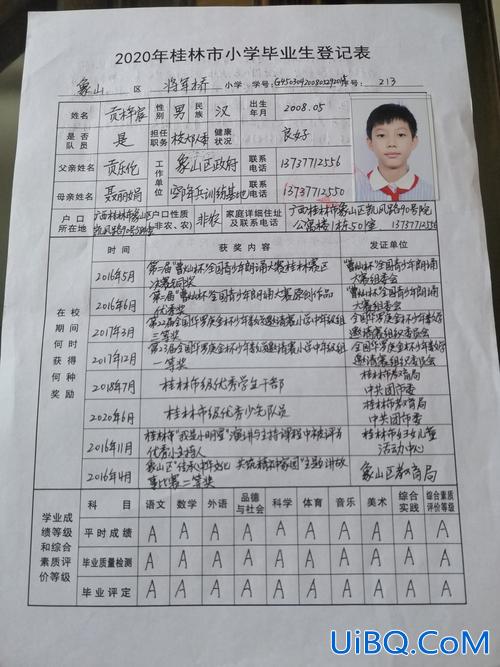 2020年桂林市小学毕业生登记表
象山 区 将军桥 小学 学号: 号: 213
姓名 性别 男 民族 汉 出生年月 2008.05
是否队员 是 担任职务 校大队委 健康状况 良好
父亲姓名 工作单位 象山区政府 联系电话 13737712556
母亲姓名 联系电话 13737712550
户口所在地 广西桂林市象山区凯风路90号 户口性质(非农、农) 非农 家庭详细住址及联系电话 广西桂林市象山区凯风路90号院公寓楼1栋50室 13737712556
在校期间何时获得何种奖励
时间 获奖内容 发证单位
2016年5月 第二届"曹灿杯"全国青少年朗诵大赛桂林赛区决赛 "曹灿杯"全国青少年朗诵大赛组委会
2016年6月 第二届"曹灿杯"全国青少年朗诵大赛原创作品优秀奖 "曹灿杯"全国青少年朗诵大赛组委会
2017年3月 第22届全国华罗庚金杯少年数学邀请赛小学中年级组三等奖 全国华罗庚金杯少年数学邀请赛组织委员会
2017年12月 第23届全国华罗庚金杯少年数学邀请赛小学中年级组一等奖 全国华罗庚金杯少年数学邀请赛组织委员会
2018年7月 桂林市级优秀学生干部 桂林市教育局 中共团市委
2020年6月 桂林市级优秀少先队员 桂林市教育局 中共团市委
2016年11月 桂林市"我是小明星"演讲与主持课程中被评为优秀小主持人 桂林市妇女儿童活动中心
2016年4月 象山区"传承中华文化 共筑精神家园"主题讲故事比赛二等奖 象山区教育局
学业成绩等级和综合素质评价等级
科目 语文 数学 外语 品德与社会 科学 体育 音乐 美术 综合实践 综合素质评价等级
平时成绩 A A A A A A A A A A
毕业质量检测 A A A A A A A A A A
毕业评定 A A A A A A A A A A
UiBQ.CoM